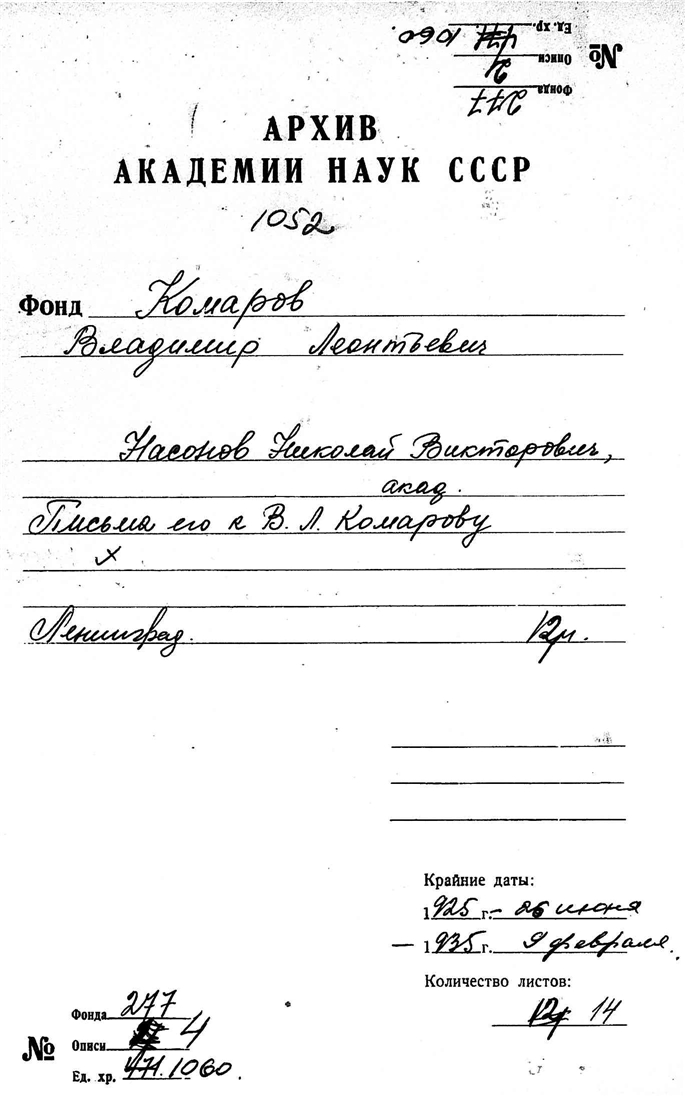 Ед. хр. 1060
№ Описи 4
Фонда 277
АРХИВ
АКАДЕМИИ НАУК СССР
1052
Фонд Комаров
Владимир Леонтьевич
Насонов Николай Викторович,
акад.
Письма его к В. Л. Комарову
х
Ленинград. 12л.
Крайние даты:
1925 г. – 26 июня
— 1935 г. 9 февраля.
Количество листов:
12л 14
Фонда 277
№ Описи 4
Ед. хр. 1060.